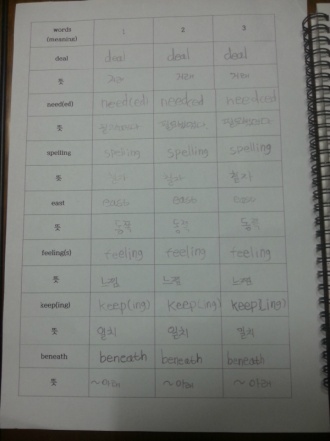 words (meaning) 1 2 3
deal deal deal deal
뜻 거래 거래 거래
need(ed) need(ed) need(ed) need(ed)
뜻 필요하다 필요하다
spelling spelling spelling spelling
뜻 철자 철자 철자
east
뜻 동쪽 동쪽 동쪽
feeling(s) feeling feeling feeling
뜻 느낌 느낌 느낌
keep(ing) keep(ing) keep(ing) keep(ing)
뜻
beneath beneath beneath beneath
뜻 ~아래 ~아래 ~아래